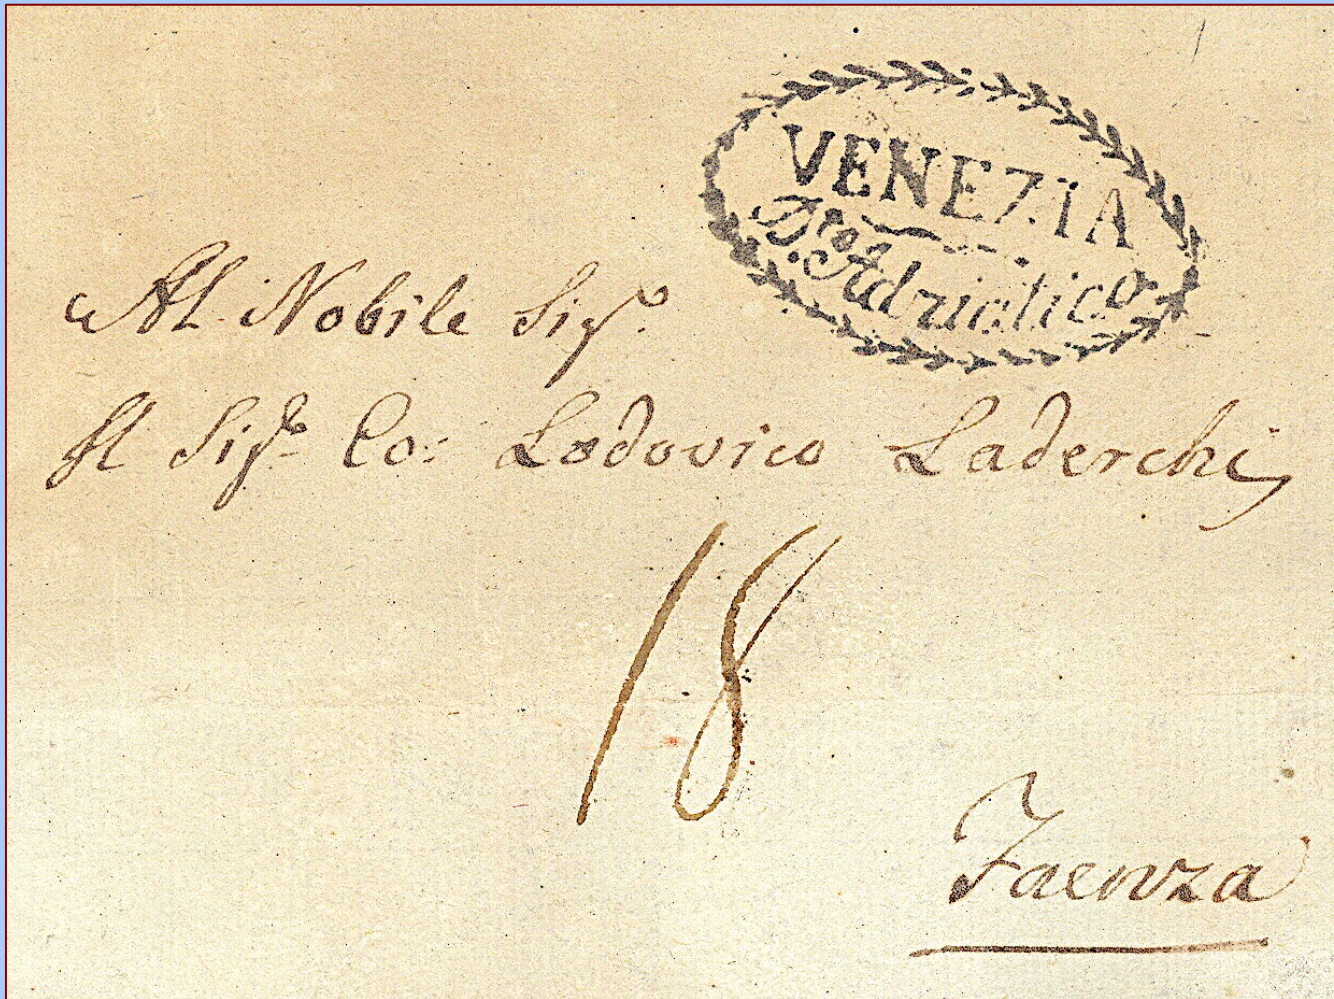 VENEZIA
D.to Adriatico
Al Nobile Sigr.
Al Sigr. Co: Lodovico Laderchi
18
Faenza